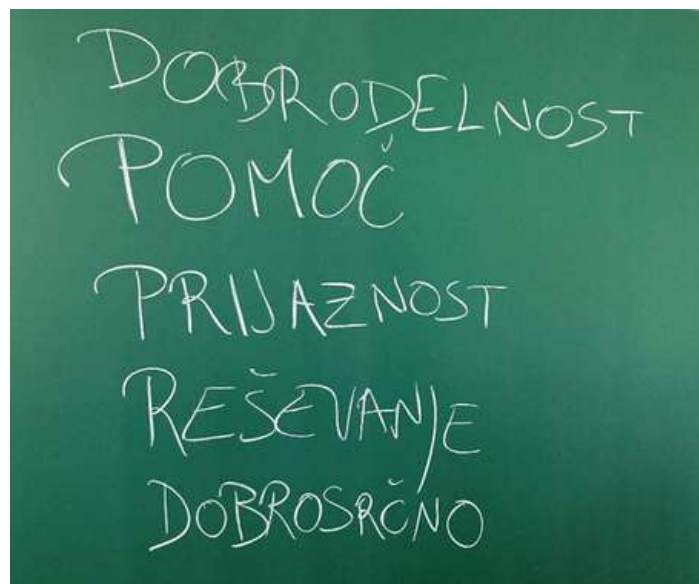 DOBRODELNOST
POMOČ
PRIJAZNOST
REŠEVANJE
DOBROSRČNO